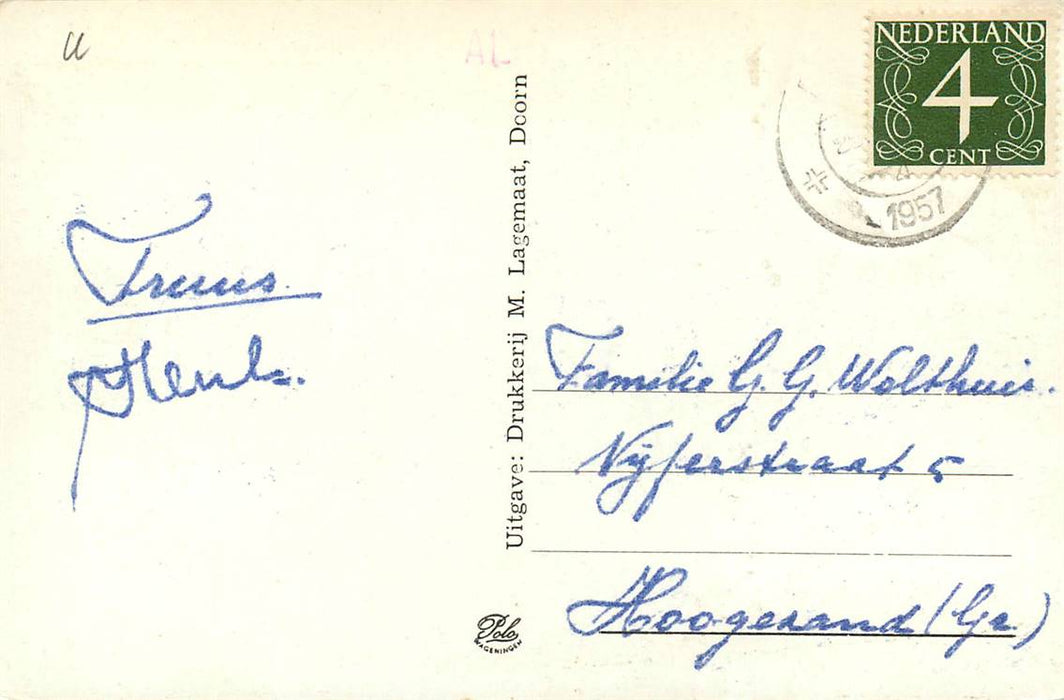 U
AL
NEDERLAND
4
CENT
4
1957
Truus
Henk.
Uitgave: Drukkerij M. Lagemaat, Doorn
Familie G. G. Wolthuis.
Vijferstraat 5
Hoogezand (Gr.)
Polo
WAGENINGEN